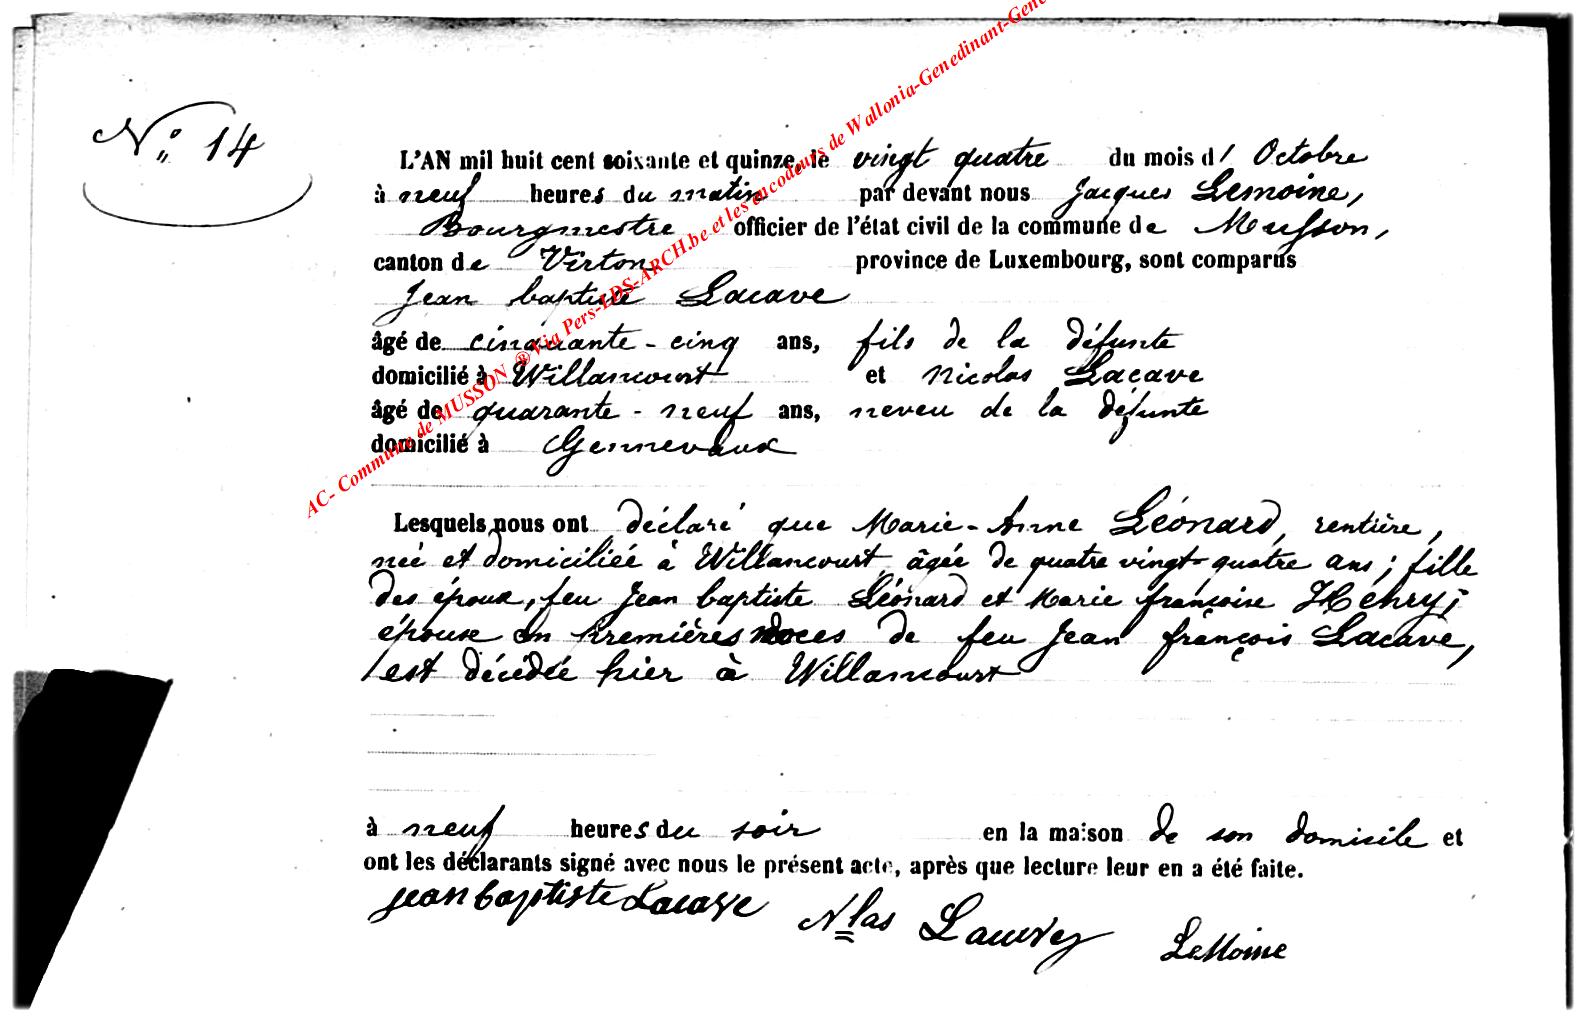 N° 14
L'AN mil huit cent soixante et quinze, le vingt quatre du mois d' Octobre
à neuf heures du matin par devant nous Jacques Lemoine,
Bourgmestre officier de l'état civil de la commune de Musson,
canton de Virton province de Luxembourg, sont comparus
Jean baptiste Lacave
âgé de cinquante-cinq ans, fils de la défunte
domicilié à Willancourt et Nicolas Lacave
âgé de quarante-neuf ans, neveu de la défunte
domicilié à Gennevaux
Lesquels nous ont déclaré que Marie-Anne Léonard, rentière,
née et domiciliée à Willancourt, âgée de quatre vingt-quatre ans; fille
des époux, feu Jean baptiste Léonard et Marie françoise Henry;
épouse en premières noces de feu Jean françois Lacave,
est décédée hier à Willancourt
à neuf heures du soir en la maison de son domicile et
ont les déclarants signé avec nous le présent acte, après que lecture leur en a été faite.
jean baptiste Lacave Nlas LeMoine
AC- Commune de MUSSON ® Via Pers-LDS-ARCH.be et les encodeurs de Wallonia-Genedinant-Gene